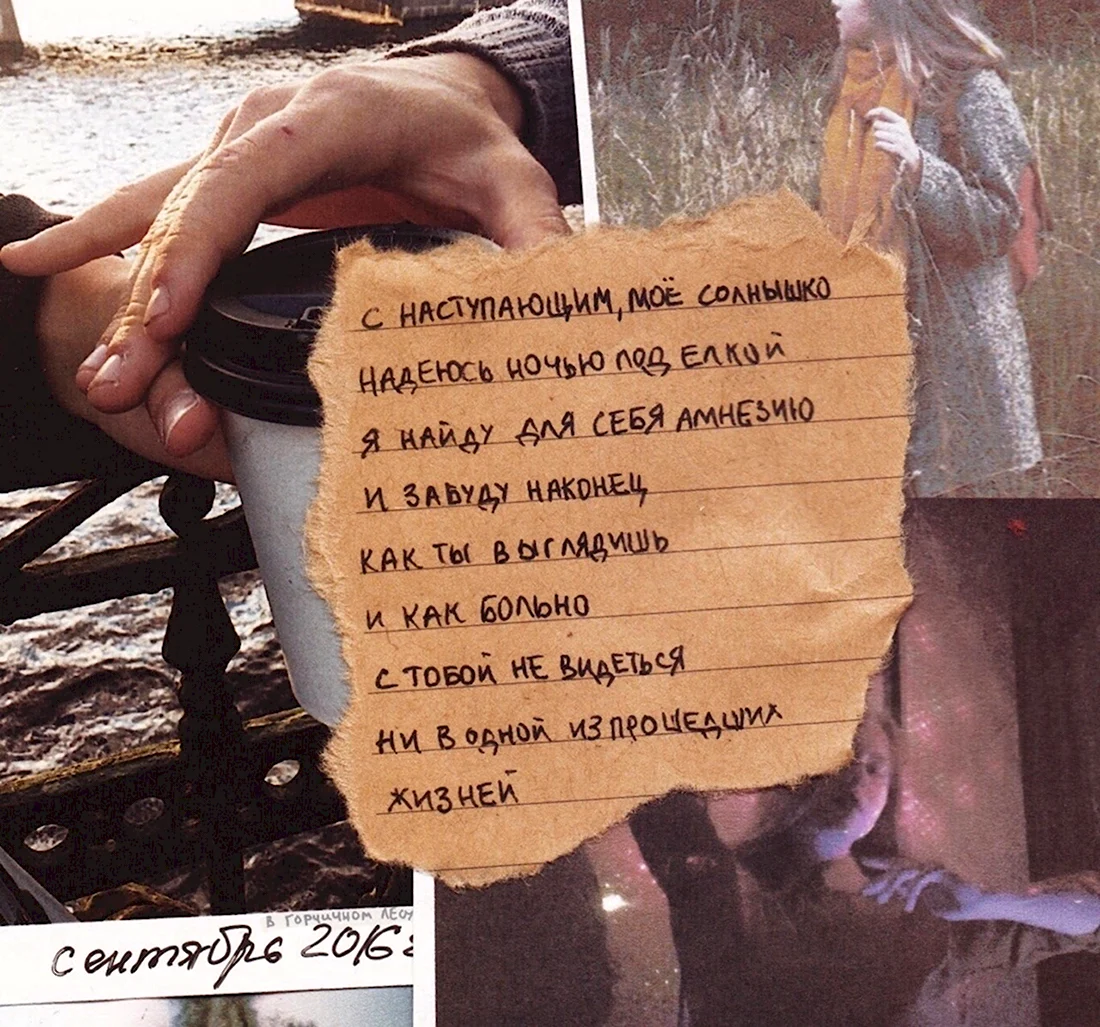 С НАСТУПАЮЩИМ, МОЁ СОЛНЫШКО
НАДЕЮСЬ НОЧЬЮ ПОД ЕЛКОЙ
Я НАЙДУ ДЛЯ СЕБЯ АМНЕЗИЮ
И ЗАБУДУ НАКОНЕЦ
КАК ТЫ ВЫГЛЯДИШЬ
И КАК БОЛЬНО
С ТОБОЙ НЕ ВИДЕТЬСЯ
НИ В ОДНОЙ ИЗ ПРОШЕДШИХ
ЖИЗНЕЙ
В ГОРЧИЧНОМ ЛЕСУ
сентябрь 2016 г